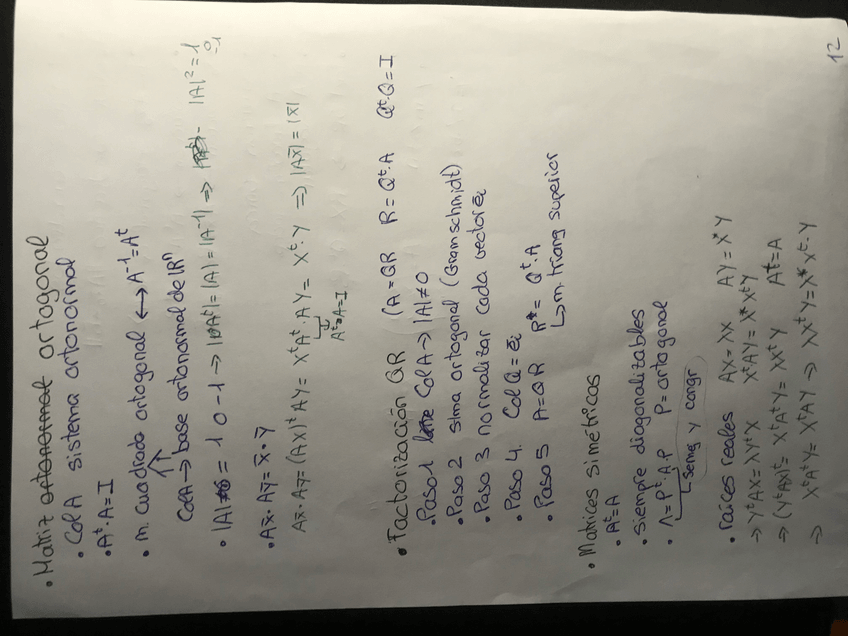 • Matriz ortonormal ortogonal
• Col A sistema ortonormal
• Aᵗ·A = I
• m. cuadrada ortogonal ⟷ A⁻¹ = Aᵗ
Col A → base ortonormal de ℝⁿ
• |A| = 1 o -1 → |Aᵗ| = |A| = |A⁻¹| ⇒ |A|² = 1
• Ax̄ · Aȳ = x̄ · ȳ
Ax̄ · Aȳ = (AX)ᵗ AY = XᵗAᵗ·AY = Xᵗ·Y ⇒ |Ax̄| = |x̄|
Aᵗ·A = I
• Factorización QR (A = QR R = Qᵗ·A Qᵗ·Q = I
• Paso 1 Col A → |A| ≠ 0
• Paso 2 sima ortogonal (Gram schmidt)
• Paso 3 normalizar cada vector ēᵢ
• Paso 4. Col Q = ēᵢ
• Paso 5 A = QR R = Qᵗ·A
↳ m. triang superior
• Matrices simétricas
• Aᵗ = A
• Siempre diagonalizables
• Λ = Pᵗ·A·P P = ortogonal
↳ semej y congr
• Raíces reales AX = λX AY = λ*Y
→ YᵗAX = λYᵗX XᵗAY = λ*XᵗY
⇒ (YᵗAX)ᵗ = XᵗAᵗY = λXᵗY Aᵗ = A
⇒ XᵗAᵗY = XᵗAY ⇒ λXᵗY = λ*Xᵗ·Y
12